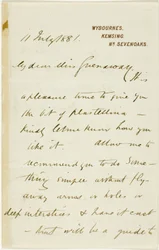 WYBOURNES,
KEMSING
NR SEVENOAKS.
11 July 1881.
My dear Miss Greenaway
It is
a pleasure to me to give you
the bit of plastellina –
kindly let me know how you
like it allow me to
recommend you to do some-
thing simple without fly-
away arms or holes in
deep interstices & have it cast
– but will be a guide to